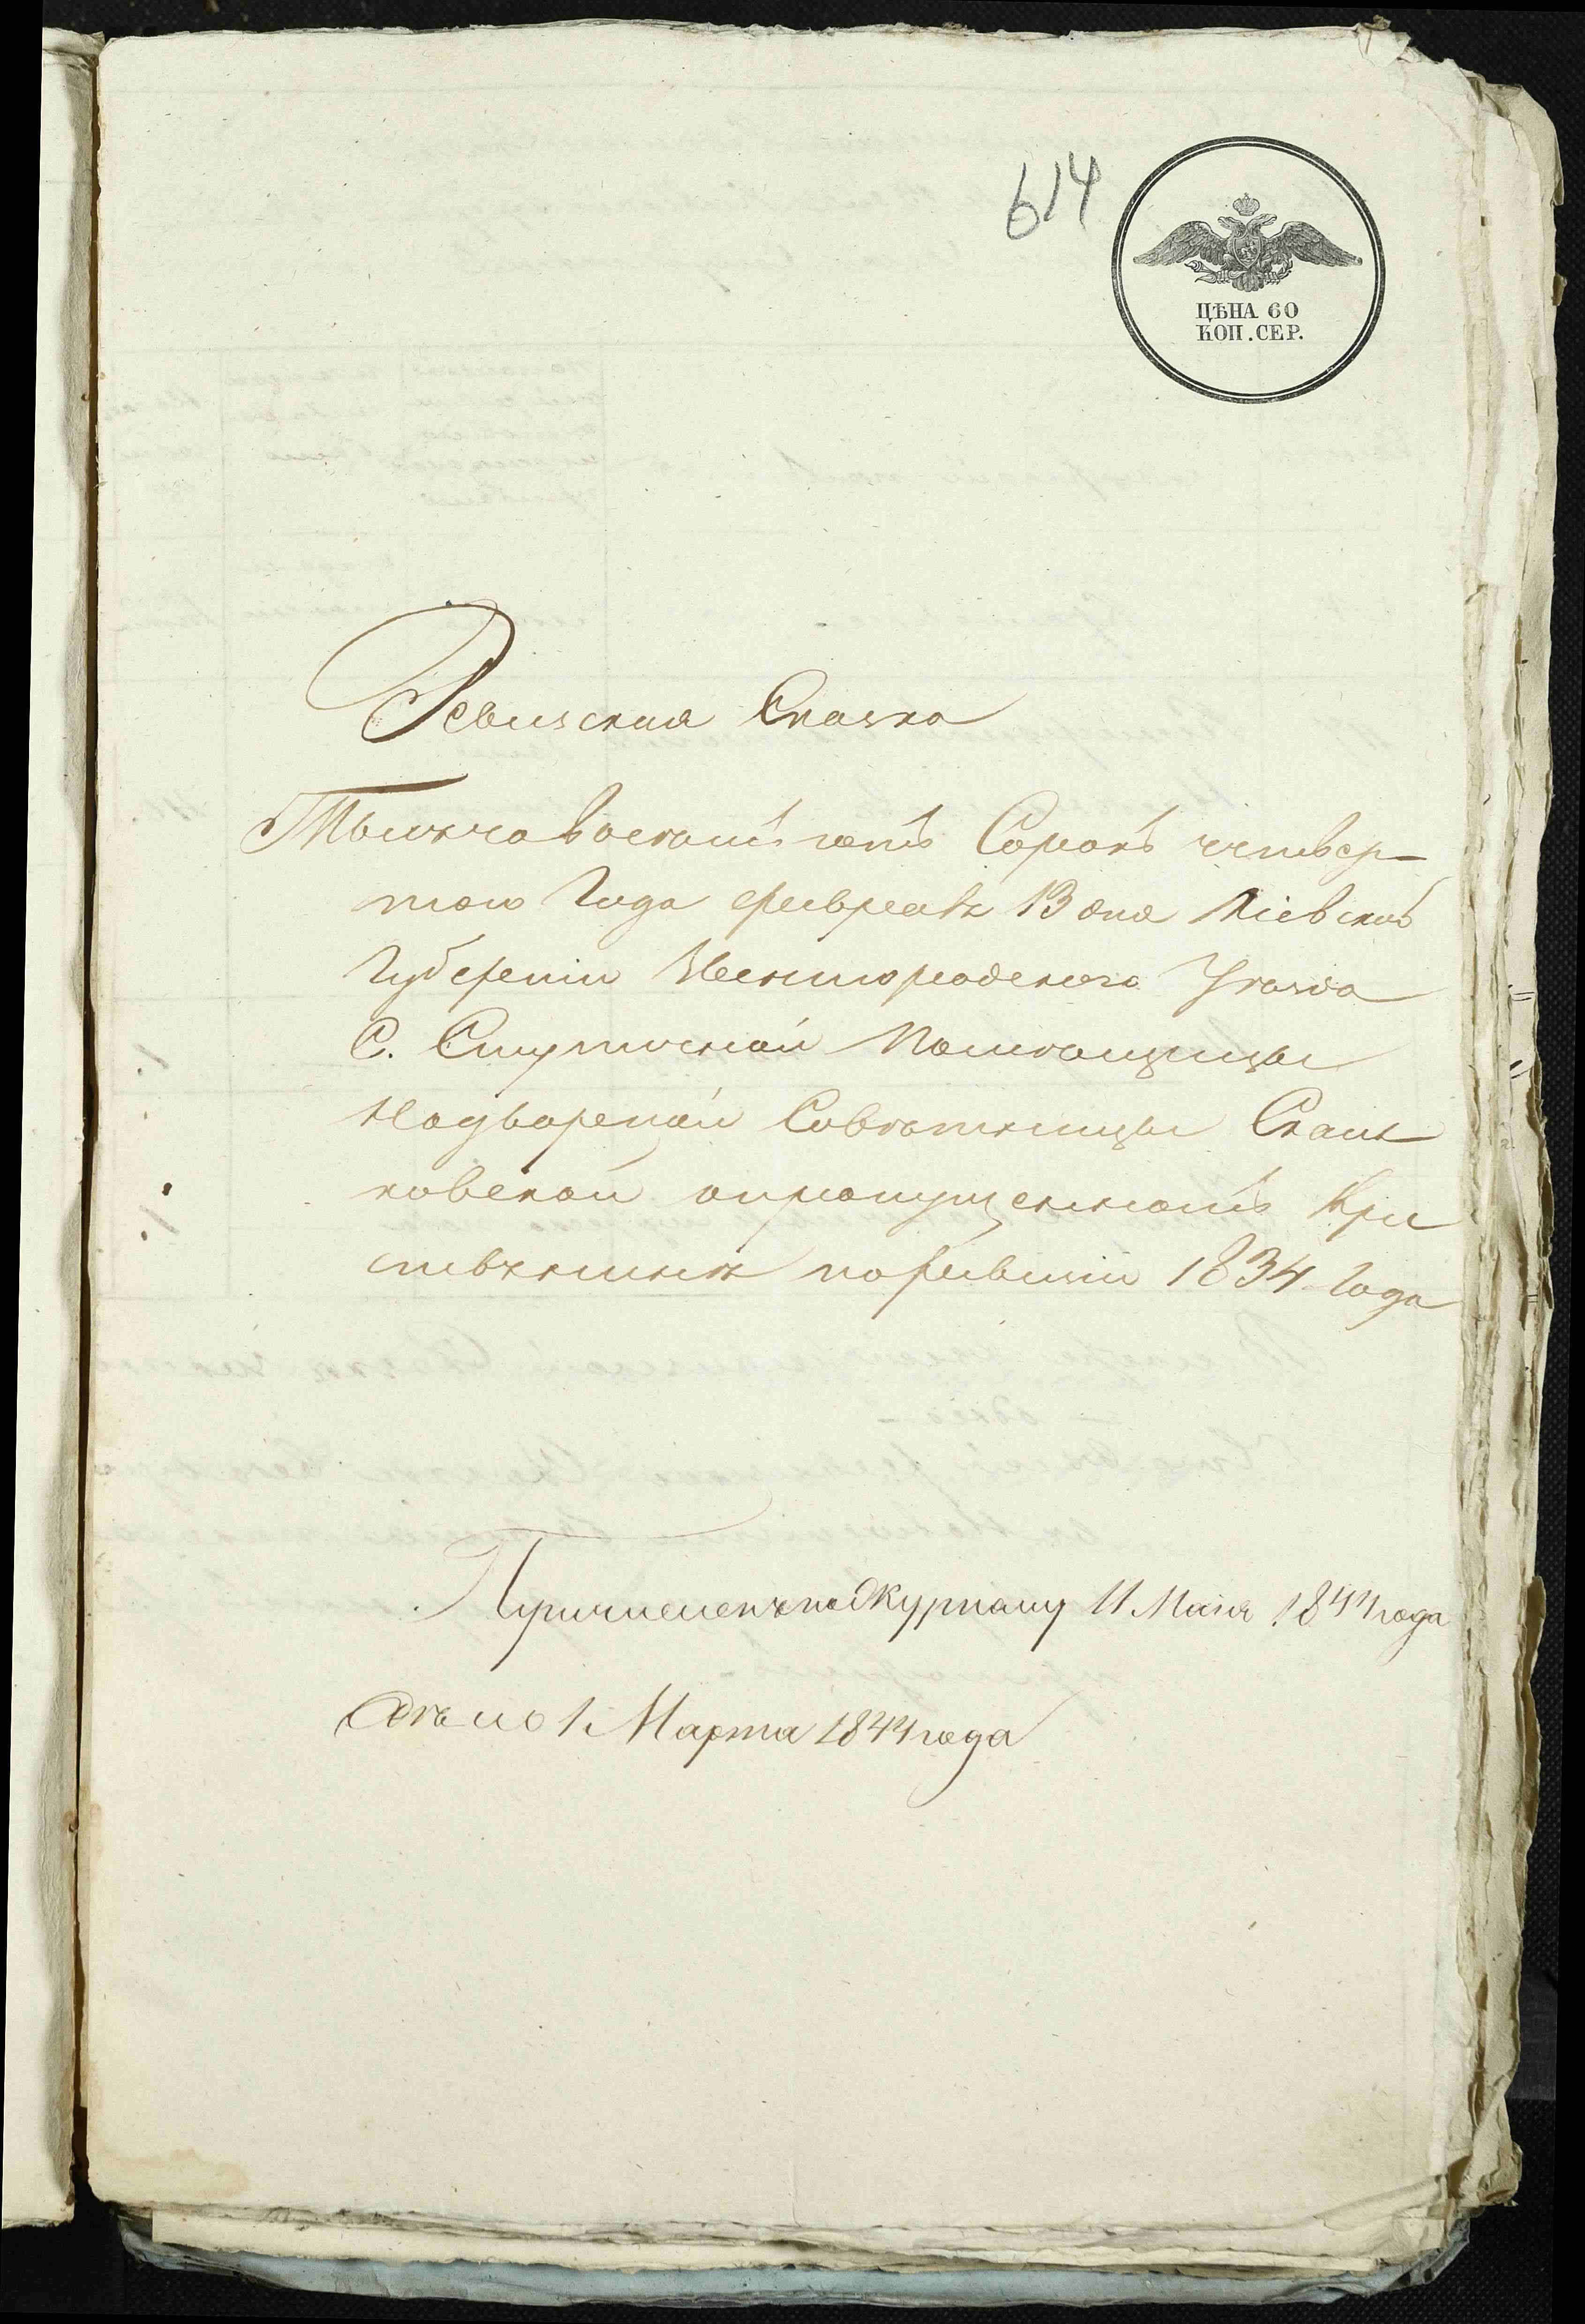 614
ЦѢНА 60
КОП. СЕР.
Ревизская Сказка
Тысяча восемъ сотъ Сорокъ четвер-
таго Года февраля 13 дня Кіевской
Губерніи Звенигородского Уѣзда
С. Ступичной Помѣщицы
Надворной Совѣтницы Скаль
ковской опропущенномъ Кре
стьянинѣ поревизіи 1834 Года
Причисленъ по Журналу 11 Мая 1844 года
Дѣло 1 Марта 1844 года